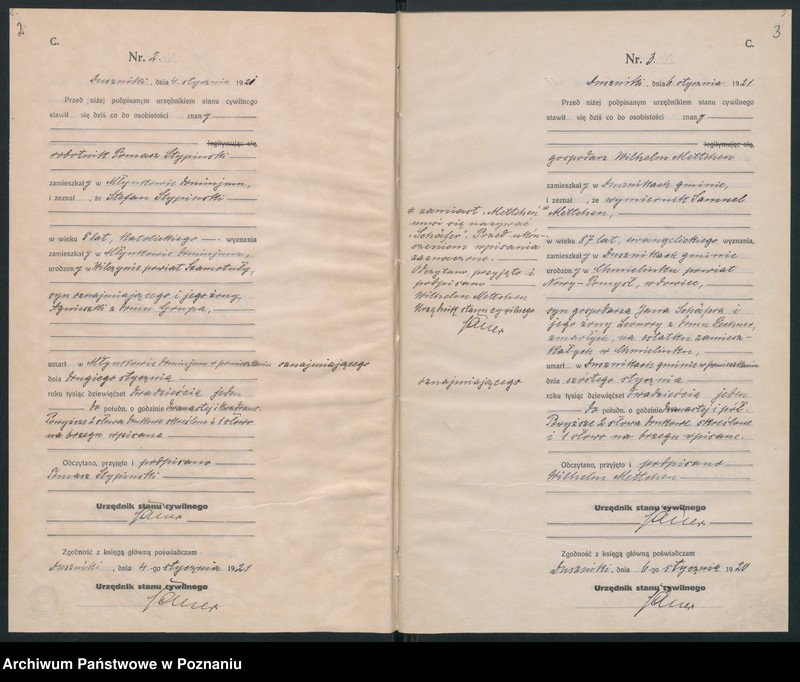 2
C.
Nr. 2.
Duszniki, dnia 4. stycznia 1921
Przed niżej podpisanym urzędnikiem stanu cywilnego
stawił się dziś co do osobistości znany
legitymując się
robotnik Tomasz Stypinski
zamieszkały w Młynkowie dominjum,
i zeznał, że Stefan Stypinski
w wieku 8 lat, katolickiego wyznania
zamieszkały w Młynkowie dominjum,
urodzony w Wilczynie powiat Szamotuły,
syn oznajmiającego i jego żony,
Agnieszki z domu Grupa,
umarł w Młynkowie dominjum w pomieszkaniu oznajmiającego
dnia drugiego stycznia
roku tysiąc dziewięćset dwadzieścia jeden
do połudn. o godzinie dwanastej i kwadrans.
Powyższe 2 słowa drukowe skreślone i 1 słowo
na brzegu wpisane
Odczytano, przyjęto i podpisano
Tomasz Stypinski
Urzędnik stanu cywilnego
Zgodność z księgą główną poświadczam
Duszniki, dnia 4-go stycznia 1921
Urzędnik stanu cywilnego
3
C.
Nr. 3.
Duszniki, dnia 6 stycznia 1921
Przed niżej podpisanym urzędnikiem stanu cywilnego
stawił się dziś co do osobistości znany
legitymując się
gospodarz Wilhelm Mettchen
zamieszkały w Dusznikach gminie,
i zeznał, że wymiernik Samuel
Mettchen,
w wieku 87 lat, ewangelickiego wyznania,
zamieszkały w Dusznikach gminie
urodzony w Chmielinku powiat
Nowy-Tomyśl, wdowiec,
syn gospodarza Jana Schäfera i
jego żony Leonory z domu
zmarłych, na ostatku zamiesz-
kałych w Chmielinku,
umarł w Dusznikach gminie w pomieszkaniu
dnia szóstego stycznia
roku tysiąc dziewięćset dwadzieścia jeden
do połudn. o godzinie dwanastej i pół.
Powyższe 2 słowa drukowe skreślone
i 1 słowo na brzegu wpisane.
Odczytano, przyjęto i podpisano
Wilhelm Mettchen
Urzędnik stanu cywilnego
Zgodność z księgą główną poświadczam
Duszniki, dnia 6-go stycznia 1920
Urzędnik stanu cywilnego
zamiast "Mettchen"
musi się nazywać
"Schäfer". Przed ukoń-
czeniem wpisania
zaznaczone.
Odczytano przyjęto i
podpisano
Wilhelm Mettchen
Urzędnik stanu cywilnego
oznajmiającego
Archiwum Państwowe w Poznaniu